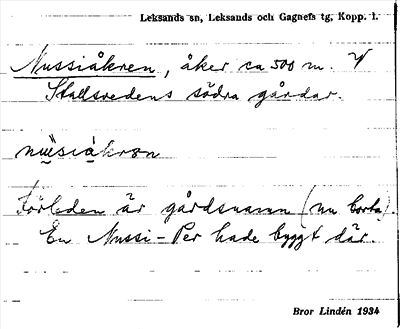 Leksands sn, Leksands och Gagnefs tg, Kopp. l.
Nussiåkren, åker ca 500 m. V
Stallsvedens södra gårdar.
Förleden är gårdsnamn (nu borta).
En Nussi-Per hade byggt där.
Bror Lindén 1934